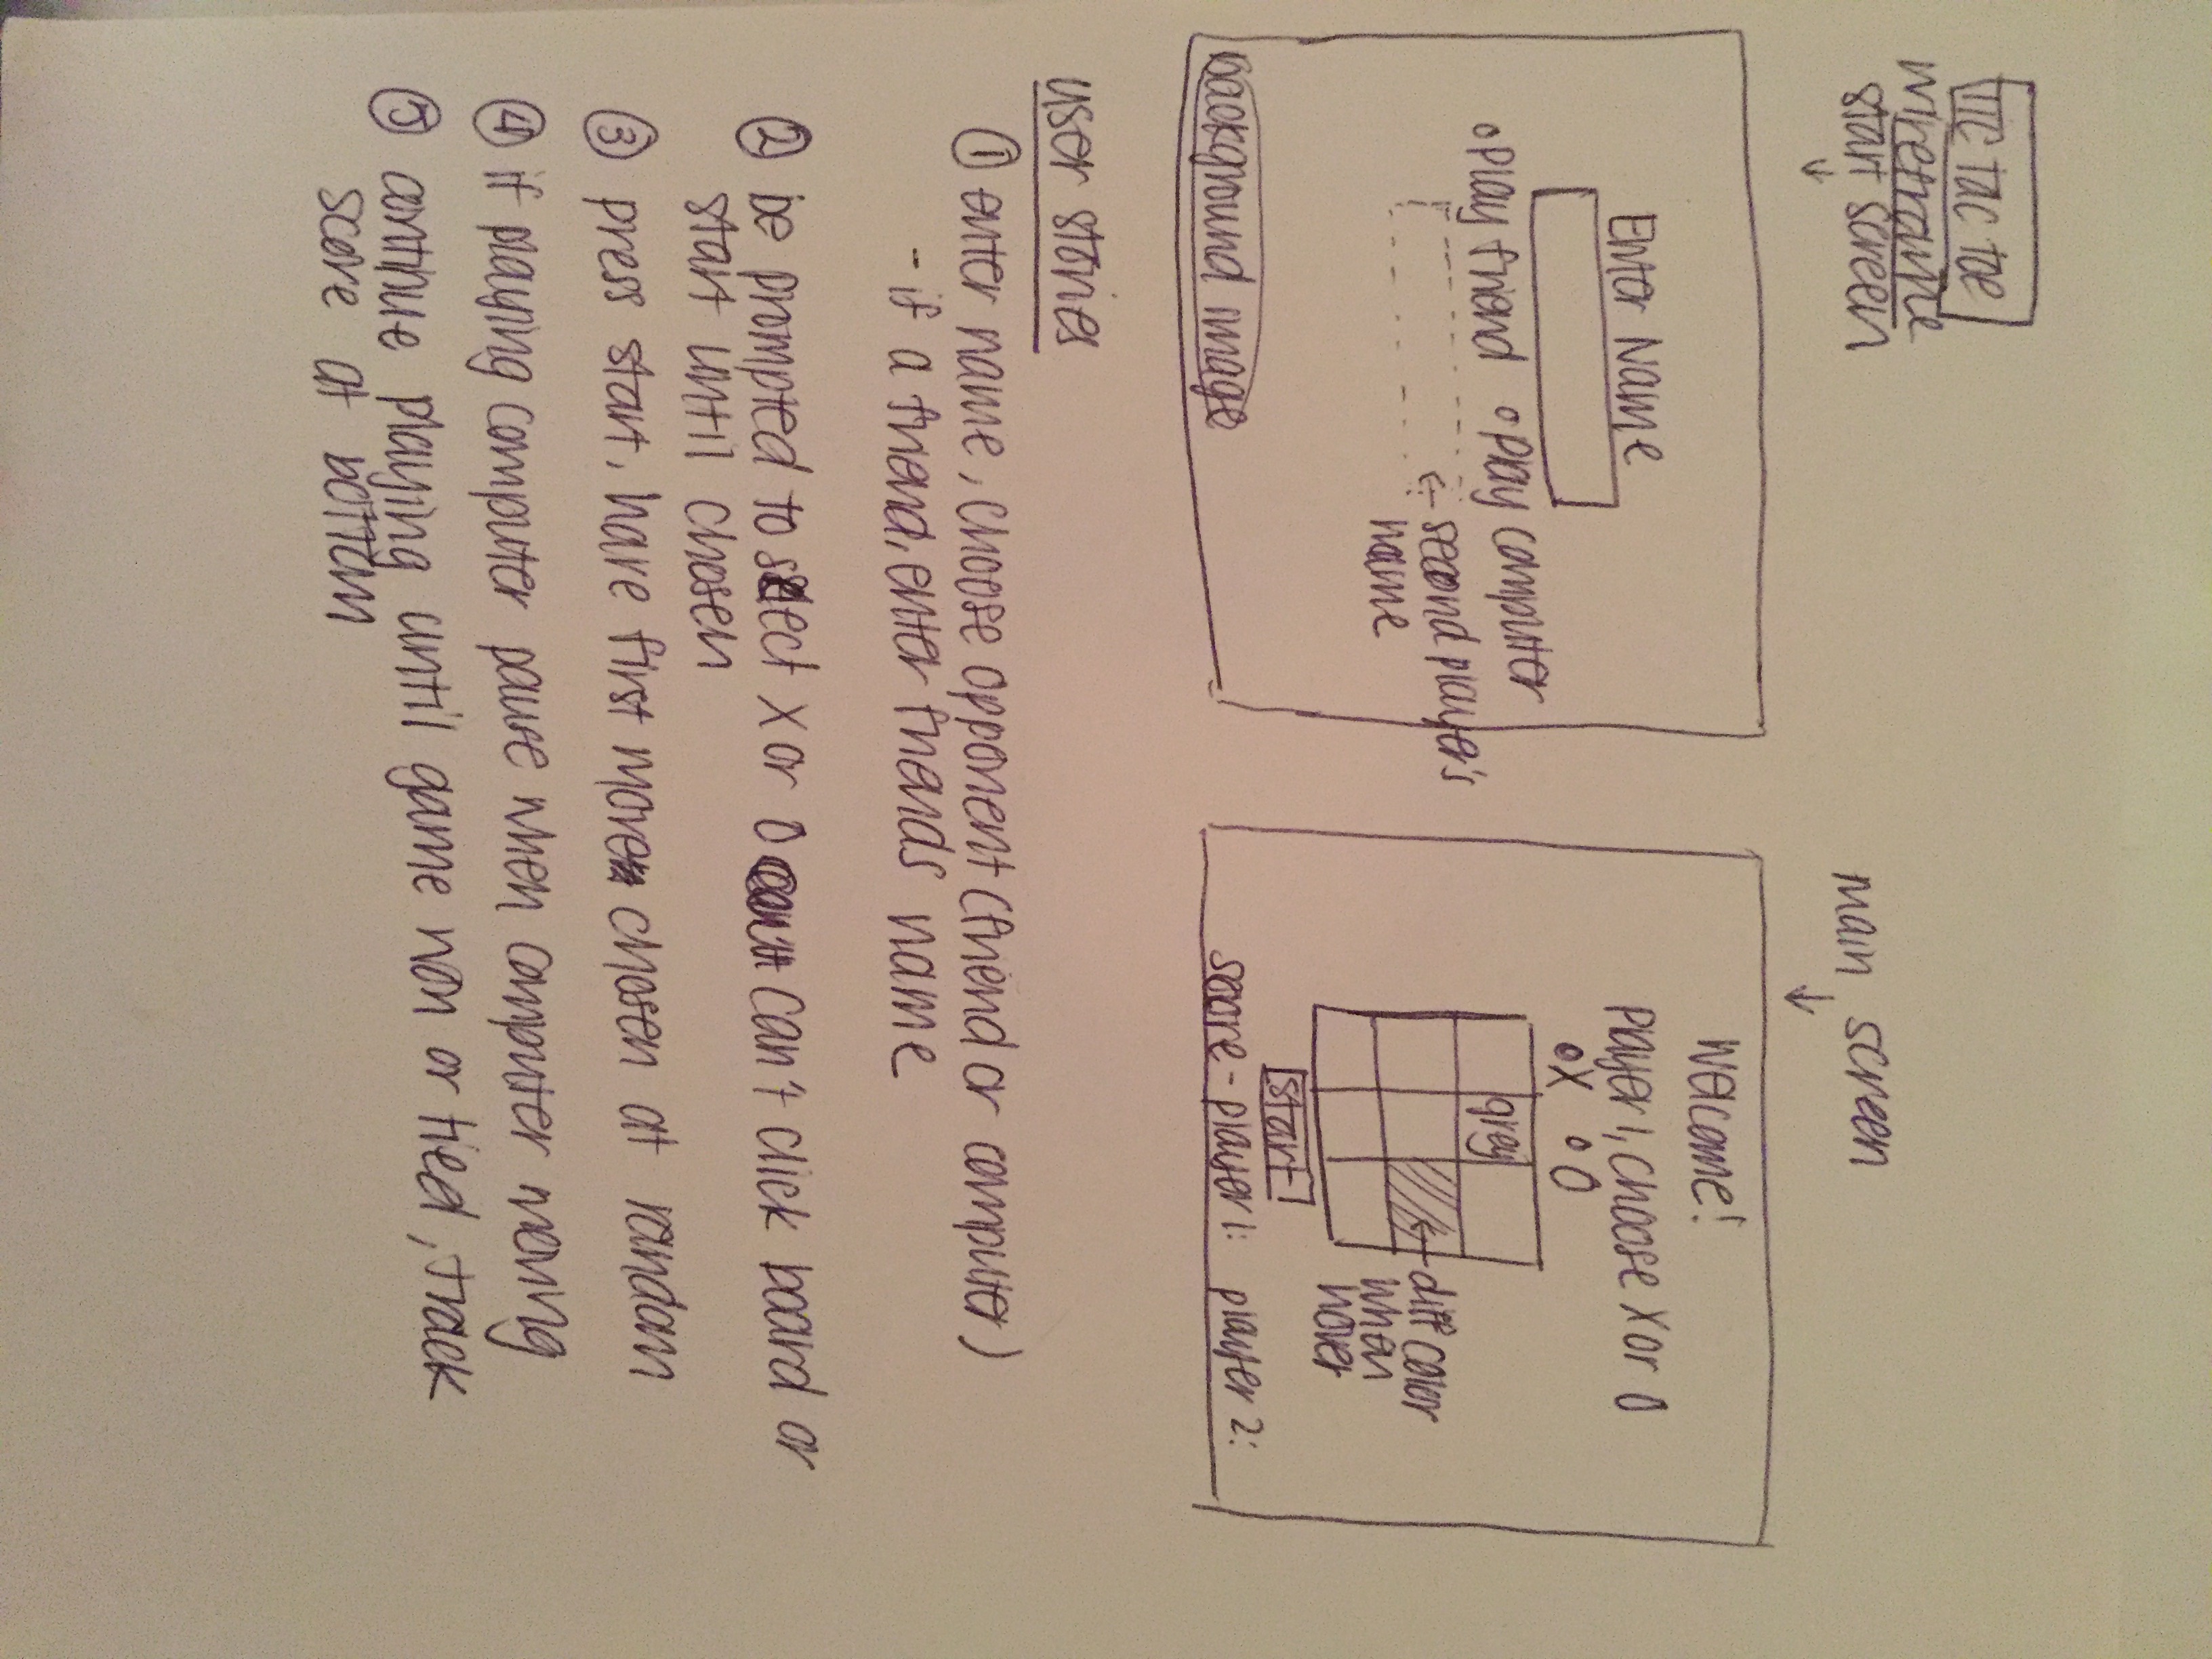 TIC TAC TOE
wireframe
start screen
↓
Enter Name
o play friend o play computer
← second player's
name
background image
main screen
↓
WELCOME!
player 1, choose X or O
• X • O
grey
← diff color
when
hover
START
score - player 1: player 2:
user stories
① enter name, choose opponent (friend or computer)
- if a friend, enter friends name
② be prompted to select X or O can't click board or
start until chosen
③ press start, have first move chosen at random
④ if playing computer pause when computer moving
⑤ continue playing until game won or tied, track
score at bottom